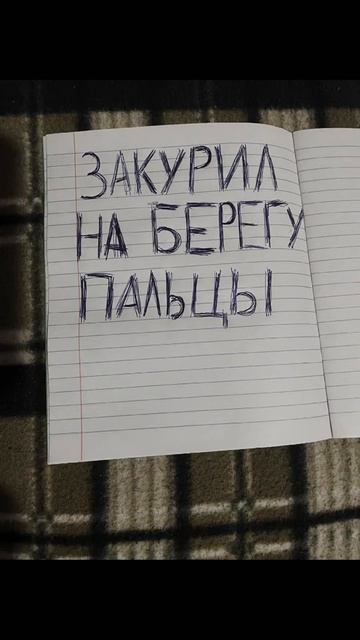 ЗАКУРИЛ
НА БЕРЕГУ
ПАЛЬЦЫ